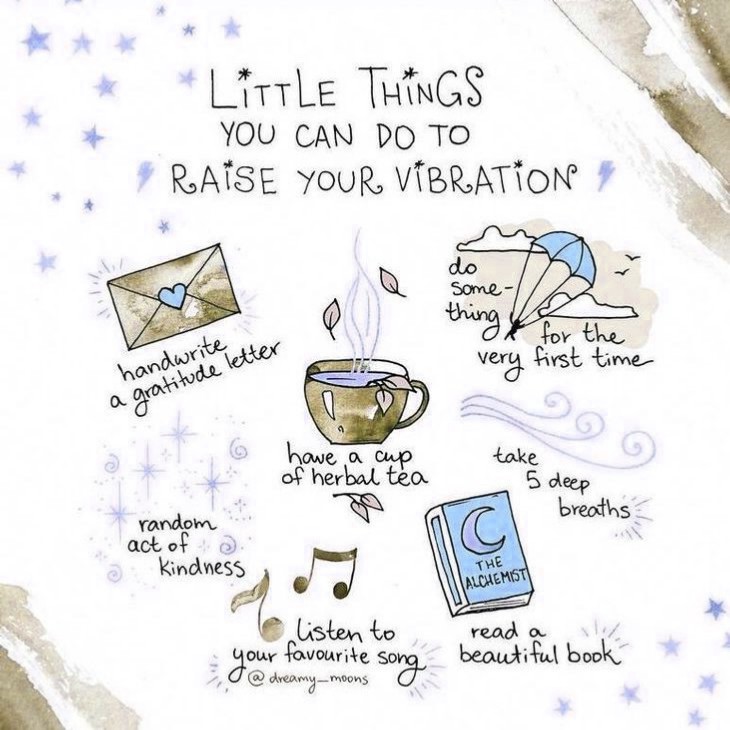 LiTTLE THiNGS
YOU CAN DO TO
RAiSE YOUR ViBRATiON
handwrite
a gratitude letter
have a cup
of herbal tea
do
some-
thing
for the
very first time
take
5 deep
breaths
random
act of
kindness
THE
ALCHEMIST
listen to
your favourite song
@dreamy_moons
read a
beautiful book